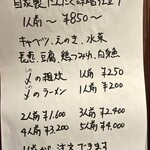 自家製にんにく味噌仕立
1人前 〜 ¥850〜
キャベツ、えのき、水菜
長葱、豆腐、鶏つみれ、白魚
〆の雑炊 1人前 ¥250
〆のラーメン 1人前 ¥200
2人前 ¥1.600 3人前 ¥2.400
4人前 ¥3.200 5人前 ¥4.000
注文できます